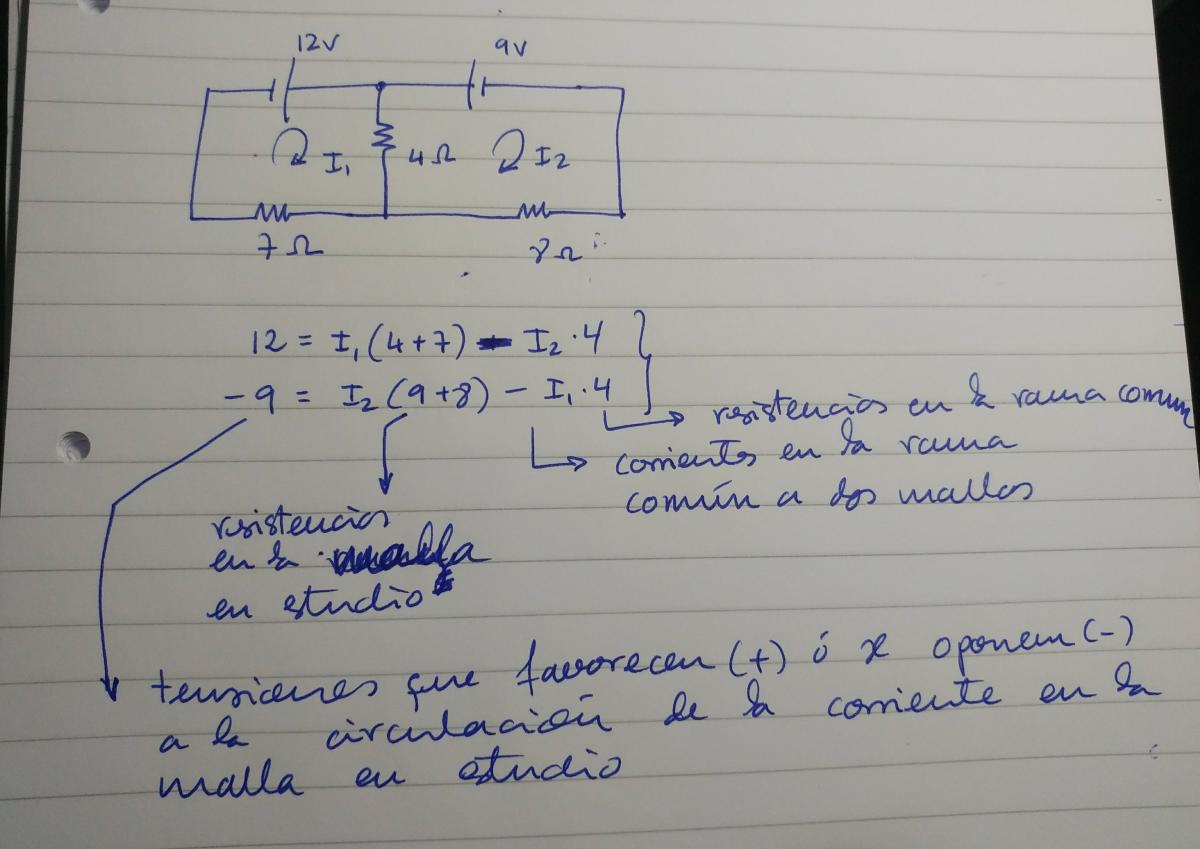 12V 9V
I₁ 4Ω I₂
7Ω 8Ω
12 = I₁(4+7) - I₂·4
-9 = I₂(9+8) - I₁·4
resistencias en la rama comun
corrientes en la rama
común a dos mallas
resistencias
en la malla
en estudio
tensiones que favorecen (+) ó se oponem (-)
a la circulación de la corriente en la
malla en estudio